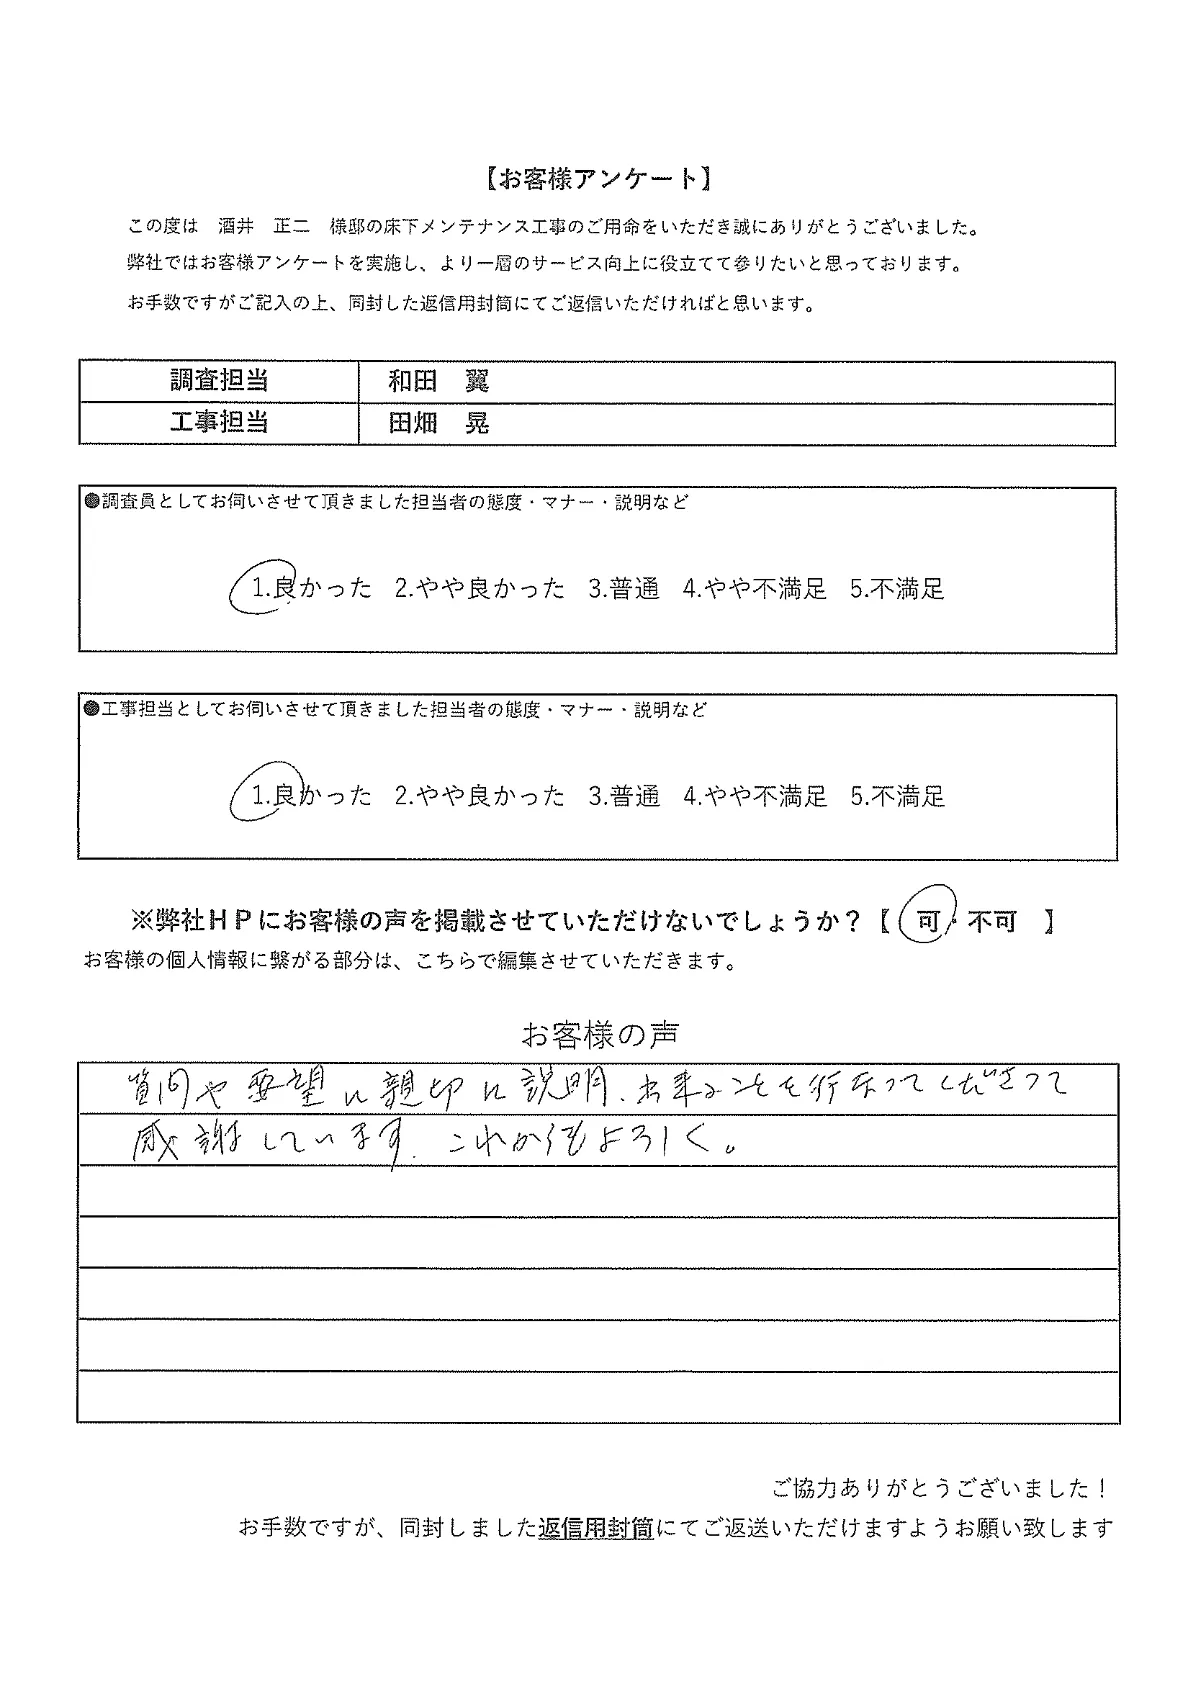 【お客様アンケート】
この度は　酒井　正二　様邸の床下メンテナンス工事のご用命をいただき誠にありがとうございました。
弊社ではお客様アンケートを実施し、より一層のサービス向上に役立てて参りたいと思っております。
お手数ですがご記入の上、同封した返信用封筒にてご返信いただければと思います。
調査担当　和田　翼
工事担当　田畑　晃
●調査員としてお伺いさせて頂きました担当者の態度・マナー・説明など
1.良かった　2.やや良かった　3.普通　4.やや不満足　5.不満足
●工事担当としてお伺いさせて頂きました担当者の態度・マナー・説明など
1.良かった　2.やや良かった　3.普通　4.やや不満足　5.不満足
※弊社ＨＰにお客様の声を掲載させていただけないでしょうか？【　可・不可　】
お客様の個人情報に繋がる部分は、こちらで編集させていただきます。
お客様の声
質問や要望に親切に説明、出来ることを行なってくださって
感謝しています。これからもよろしく。
ご協力ありがとうございました！
お手数ですが、同封しました返信用封筒にてご返送いただけますようお願い致します